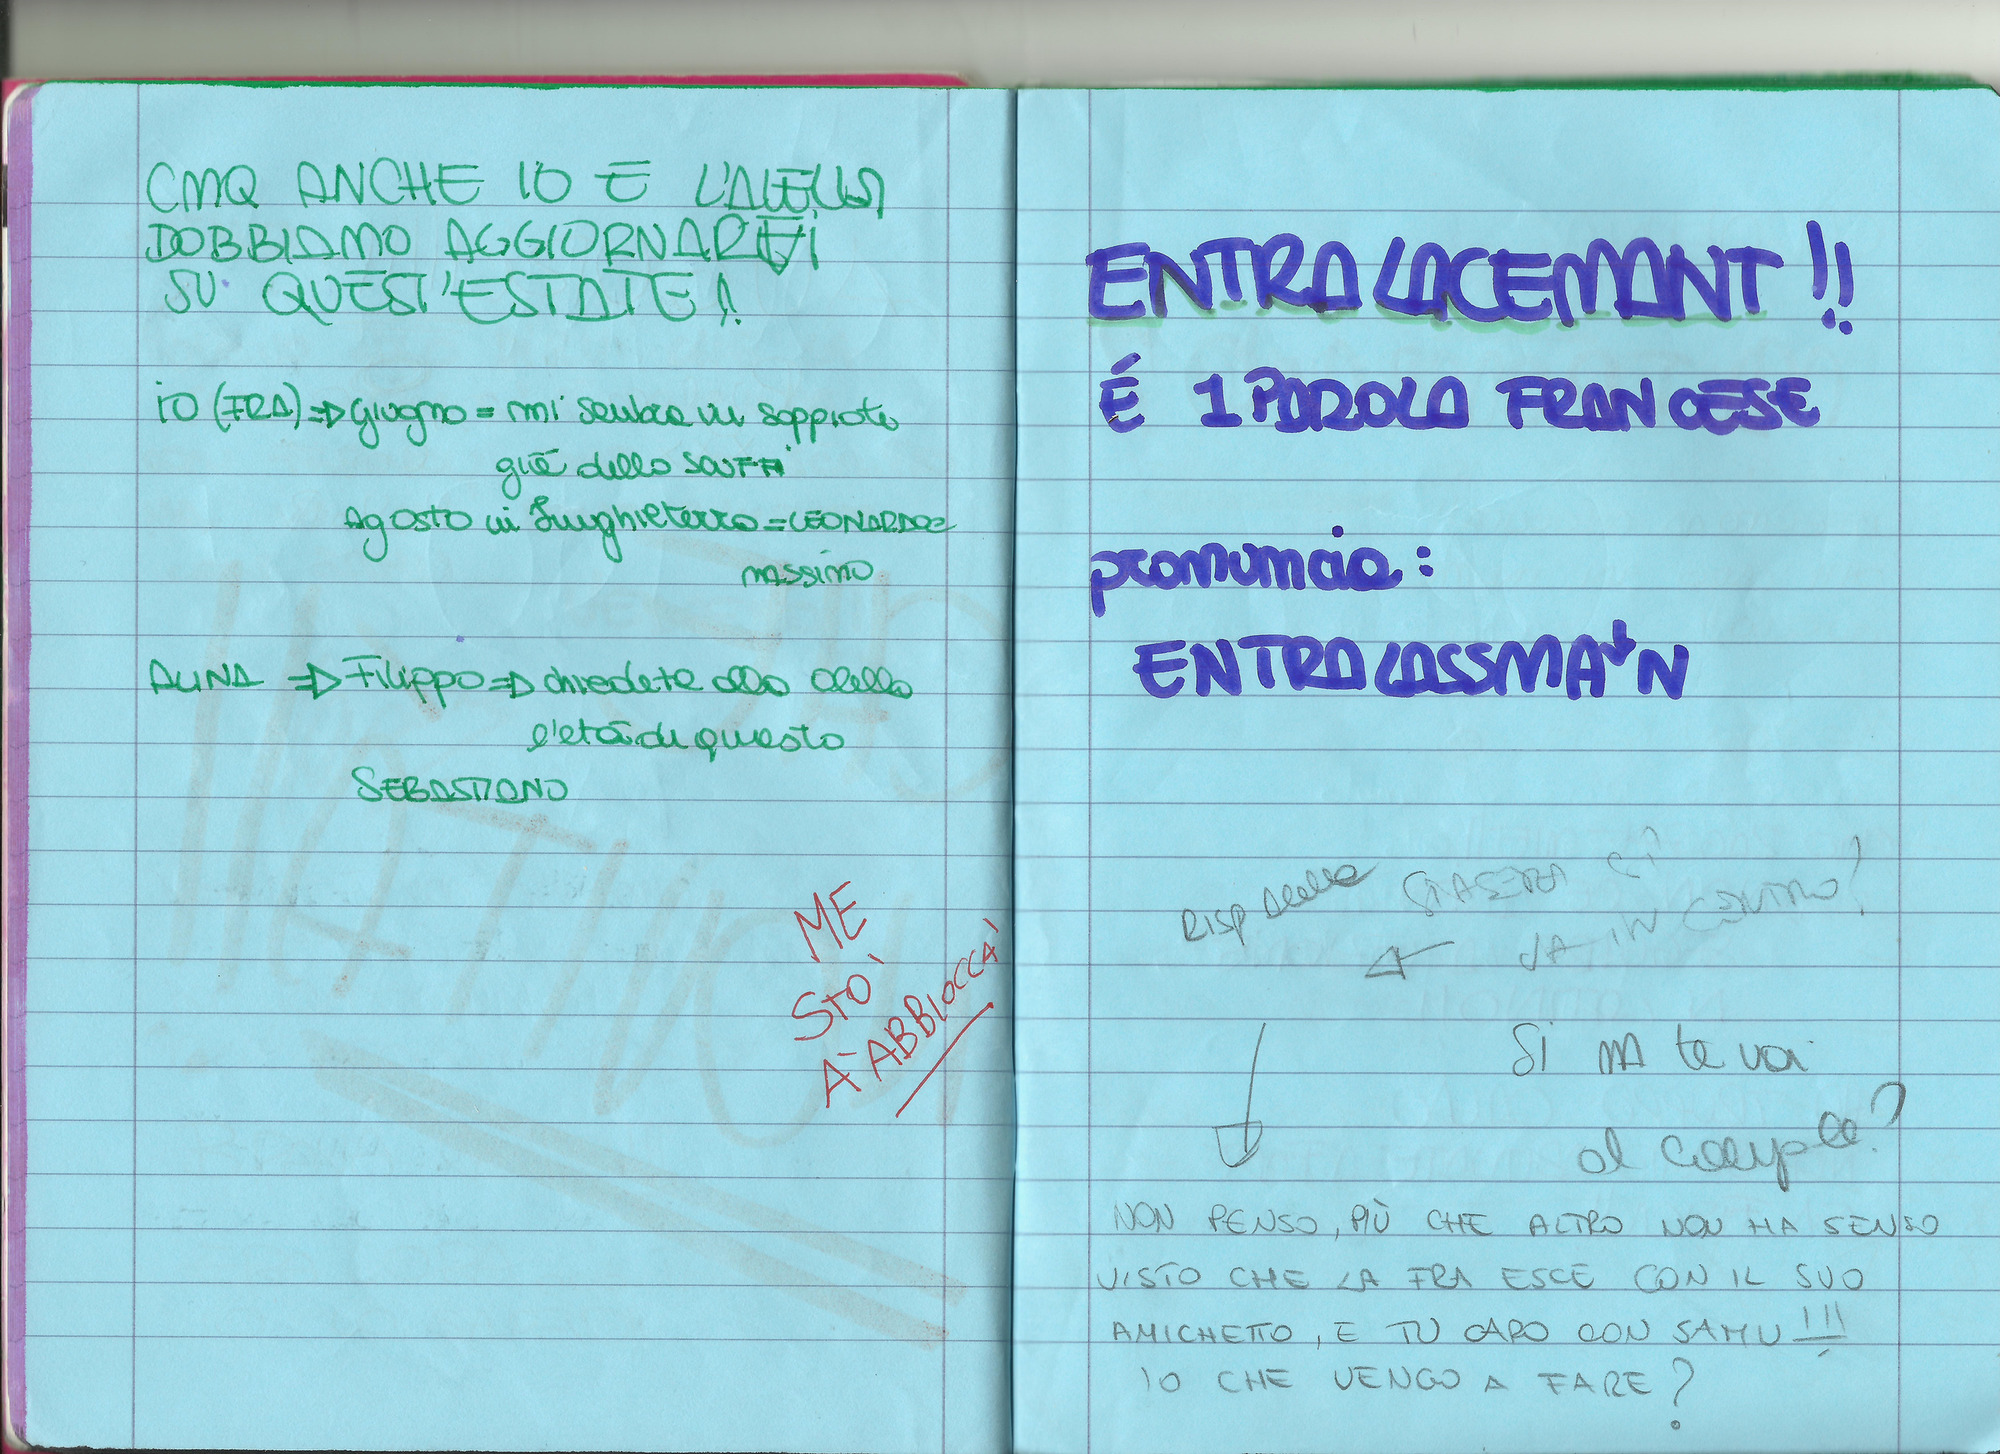 CMQ ANCHE IO E L'ALELLA
DOBBIAMO AGGIORNARVI
SU QUEST'ESTATE!!
io (FRA) => giugno = mi sembra
già dello
Agosto in Inghilterra = LEONARDO e
MASSIMO
ALINA => Filippo => chiedete alla alella
l'età di questo
SEBASTIANO
ME
STO'
A' ABBIOCCA'
ENTRALACEMANT!!
É 1 PAROLA FRANCESE
pronuncia:
ENTRALASSMA'N
RISP Alella STASERA SI
VA IN CENTRO?
Si MA te vai
al campo?
NON PENSO, PIÙ CHE ALTRO NON HA SENSO
VISTO CHE LA FRA ESCE CON IL SUO
AMICHETTO, E TU CAPO CON SAMU!!!
IO CHE VENGO A FARE?